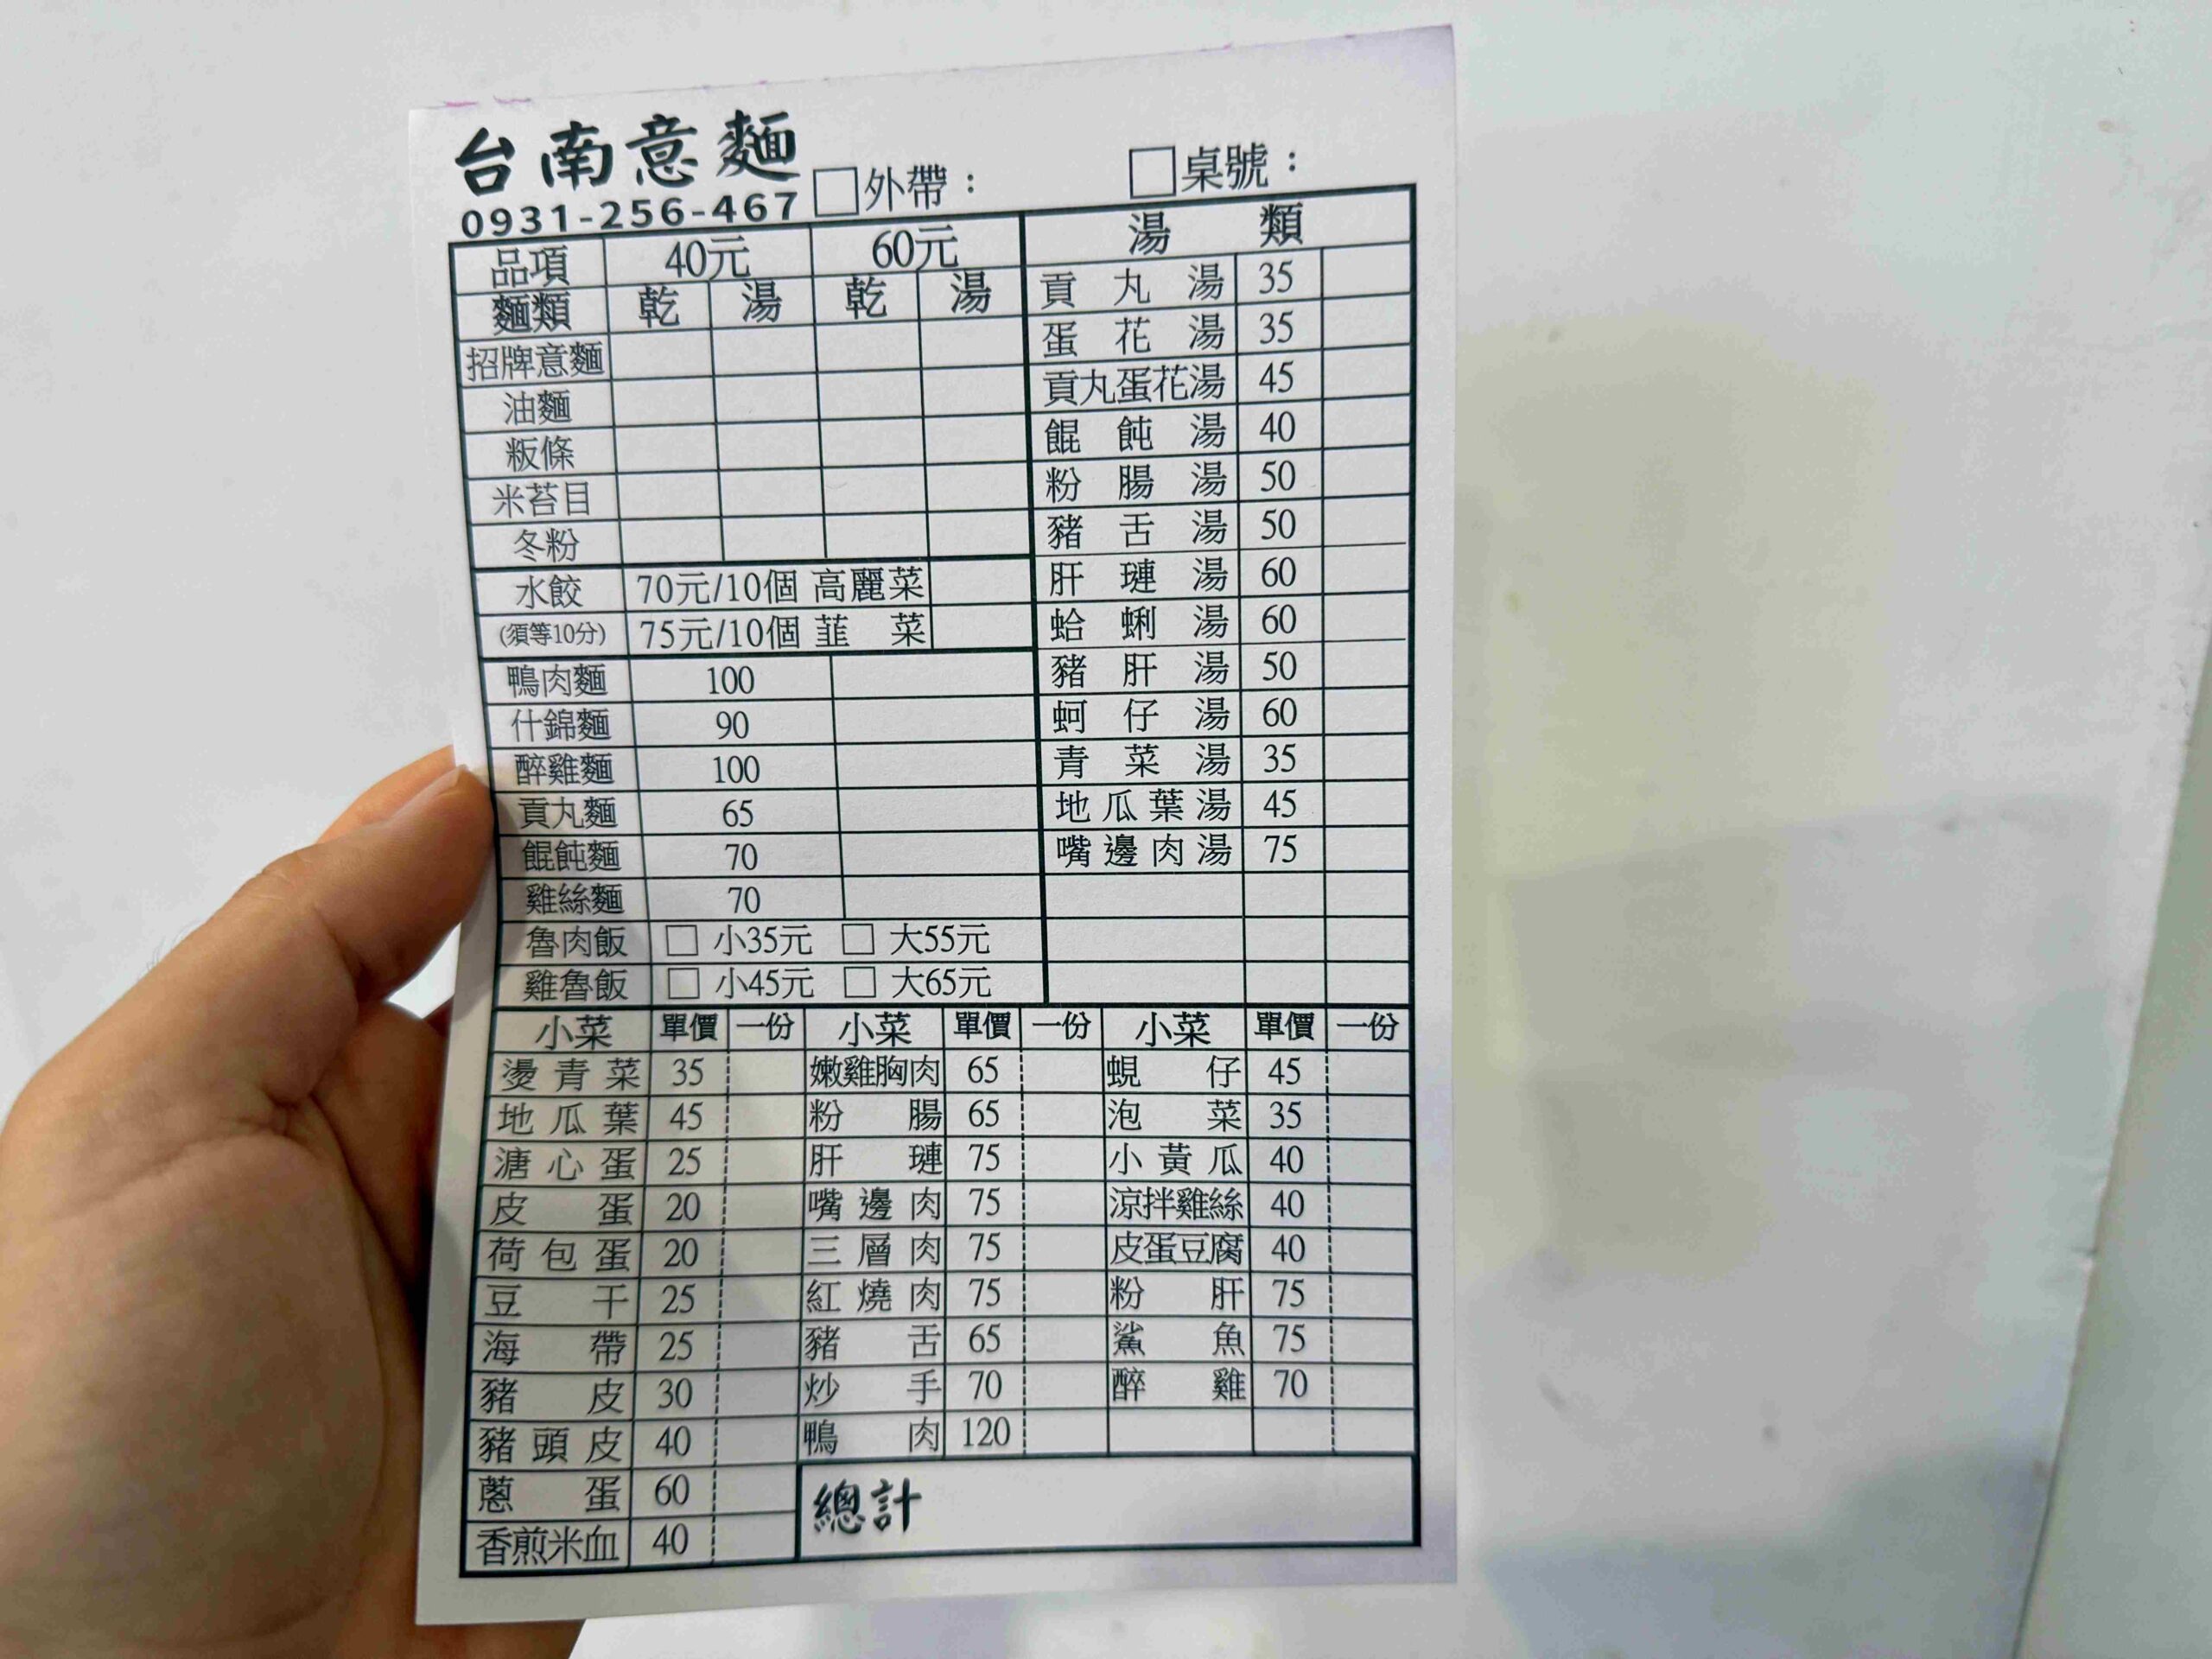 台南意麵
0931-256-467
□外帶：
□桌號：
品項 40元 60元
麵類 乾 湯 乾 湯
招牌意麵
油麵
粄條
米苔目
冬粉
水餃 70元/10個 高麗菜
(須等10分) 75元/10個 韮菜
鴨肉麵 100
什錦麵 90
醉雞麵 100
貢丸麵 65
餛飩麵 70
雞絲麵 70
魯肉飯 □ 小35元 □ 大55元
雞魯飯 □ 小45元 □ 大65元
湯類
貢丸湯 35
蛋花湯 35
貢丸蛋花湯 45
餛飩湯 40
粉腸湯 50
豬舌湯 50
肝璉湯 60
蛤蜊湯 60
豬肝湯 50
蚵仔湯 60
青菜湯 35
地瓜葉湯 45
嘴邊肉湯 75
小菜 單價 一份 小菜 單價 一份 小菜 單價 一份
燙青菜 35 嫩雞胸肉 65 蜆仔 45
地瓜葉 45 粉腸 65 泡菜 35
溏心蛋 25 肝璉 75 小黃瓜 40
皮蛋 20 嘴邊肉 75 涼拌雞絲 40
荷包蛋 20 三層肉 75 皮蛋豆腐 40
豆干 25 紅燒肉 75 粉肝 75
海帶 25 豬舌 65 鯊魚 75
豬皮 30 炒手 70 醉雞 70
豬頭皮 40 鴨肉 120
蔥蛋 60
香煎米血 40
總計